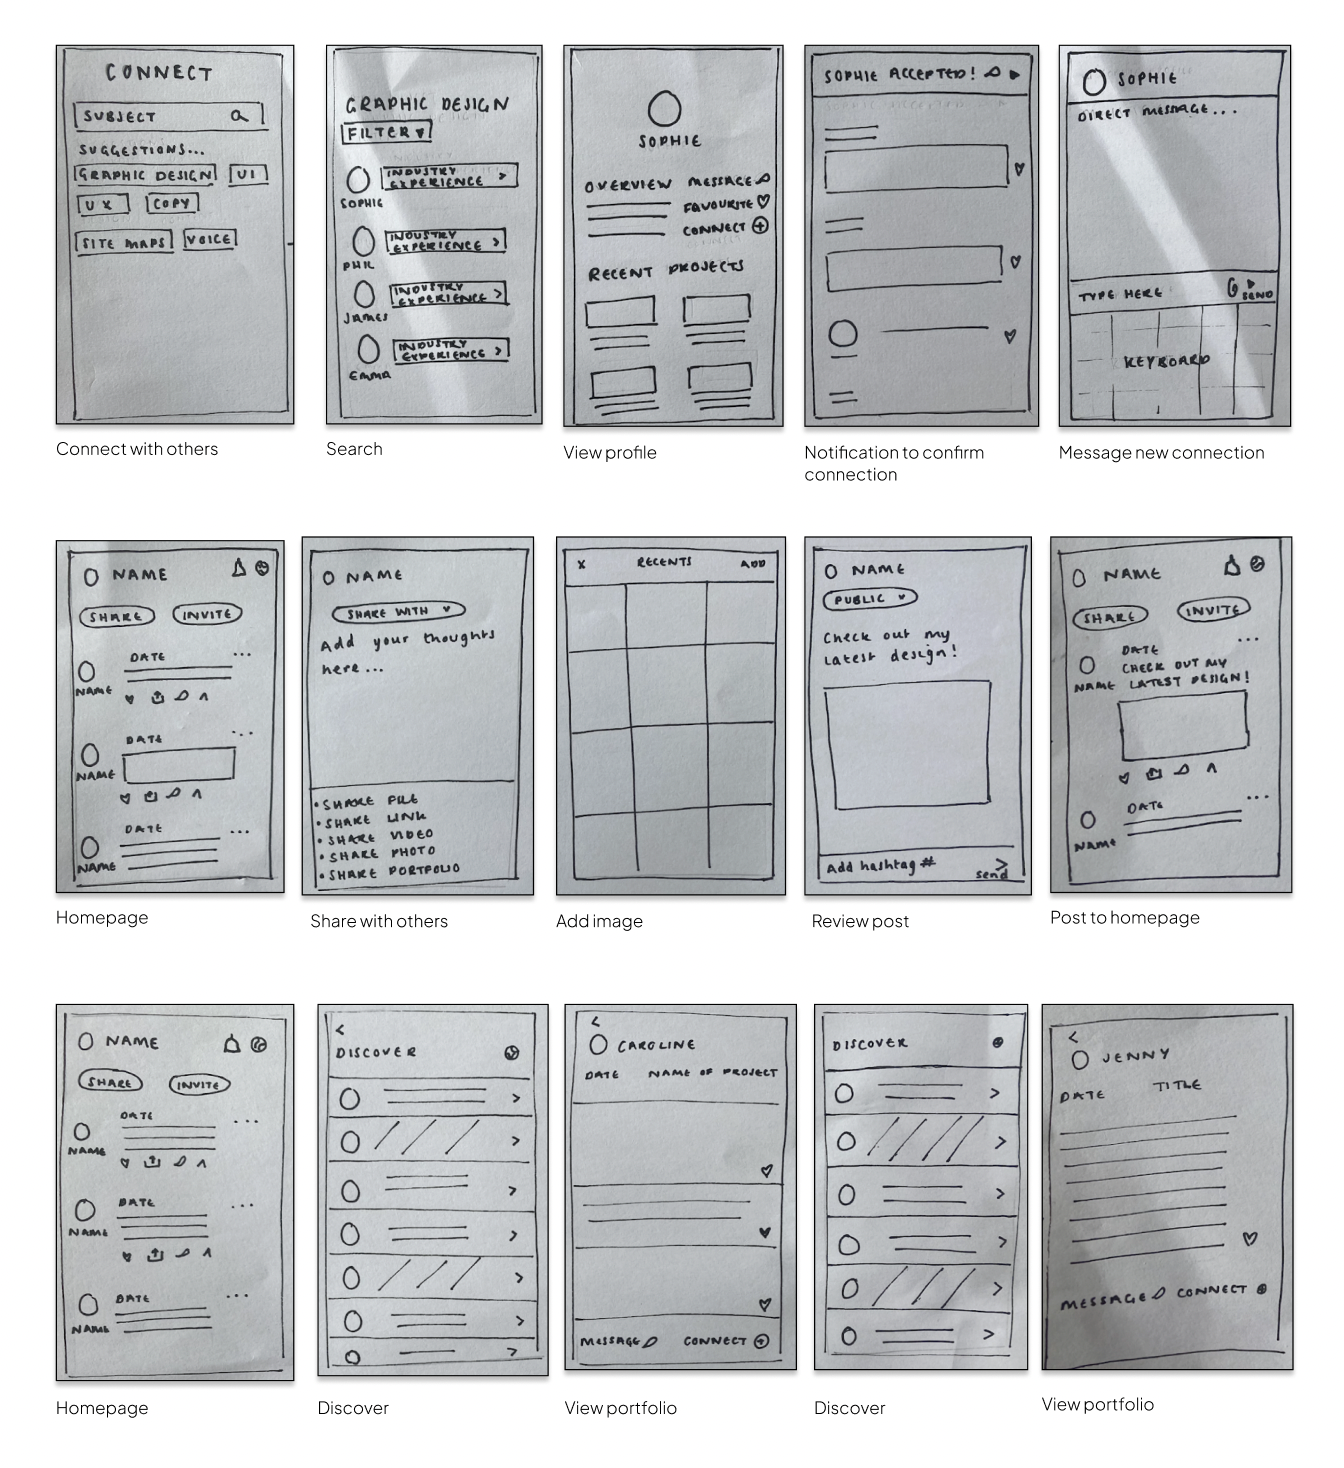 CONNECT
SUBJECT
SUGGESTIONS...
GRAPHIC DESIGN UI
UX COPY
SITE MAPS VOICE
Connect with others
GRAPHIC DESIGN
FILTER
INDUSTRY
EXPERIENCE >
SOPHIE
INDUSTRY
EXPERIENCE >
PHIL
INDUSTRY
EXPERIENCE >
JAMES
INDUSTRY
EXPERIENCE >
EMMA
Search
SOPHIE
OVERVIEW MESSAGE
FAVOURITE
CONNECT
RECENT PROJECTS
View profile
SOPHIE ACCEPTED!
Notification to confirm
connection
SOPHIE
DIRECT MESSAGE...
TYPE HERE SEND
KEYBOARD
Message new connection
NAME
SHARE INVITE
DATE ...
NAME
DATE ...
NAME
DATE ...
NAME
Homepage
NAME
SHARE WITH
Add your thoughts
here...
• SHARE FILE
• SHARE LINK
• SHARE VIDEO
• SHARE PHOTO
• SHARE PORTFOLIO
Share with others
X RECENTS ADD
Add image
NAME
PUBLIC
Check out my
latest design!
Add hashtag # >
send
Review post
NAME
SHARE INVITE
...
DATE
CHECK OUT MY
NAME LATEST DESIGN!
DATE ...
NAME
Post to homepage
NAME
SHARE INVITE
DATE ...
NAME
DATE ...
NAME
DATE ...
NAME
Homepage
<
DISCOVER
>
>
>
>
>
>
>
Discover
<
CAROLINE
DATE NAME OF PROJECT
MESSAGE CONNECT
View portfolio
DISCOVER
>
>
>
>
>
>
Discover
<
JENNY
DATE TITLE
MESSAGE CONNECT
View portfolio